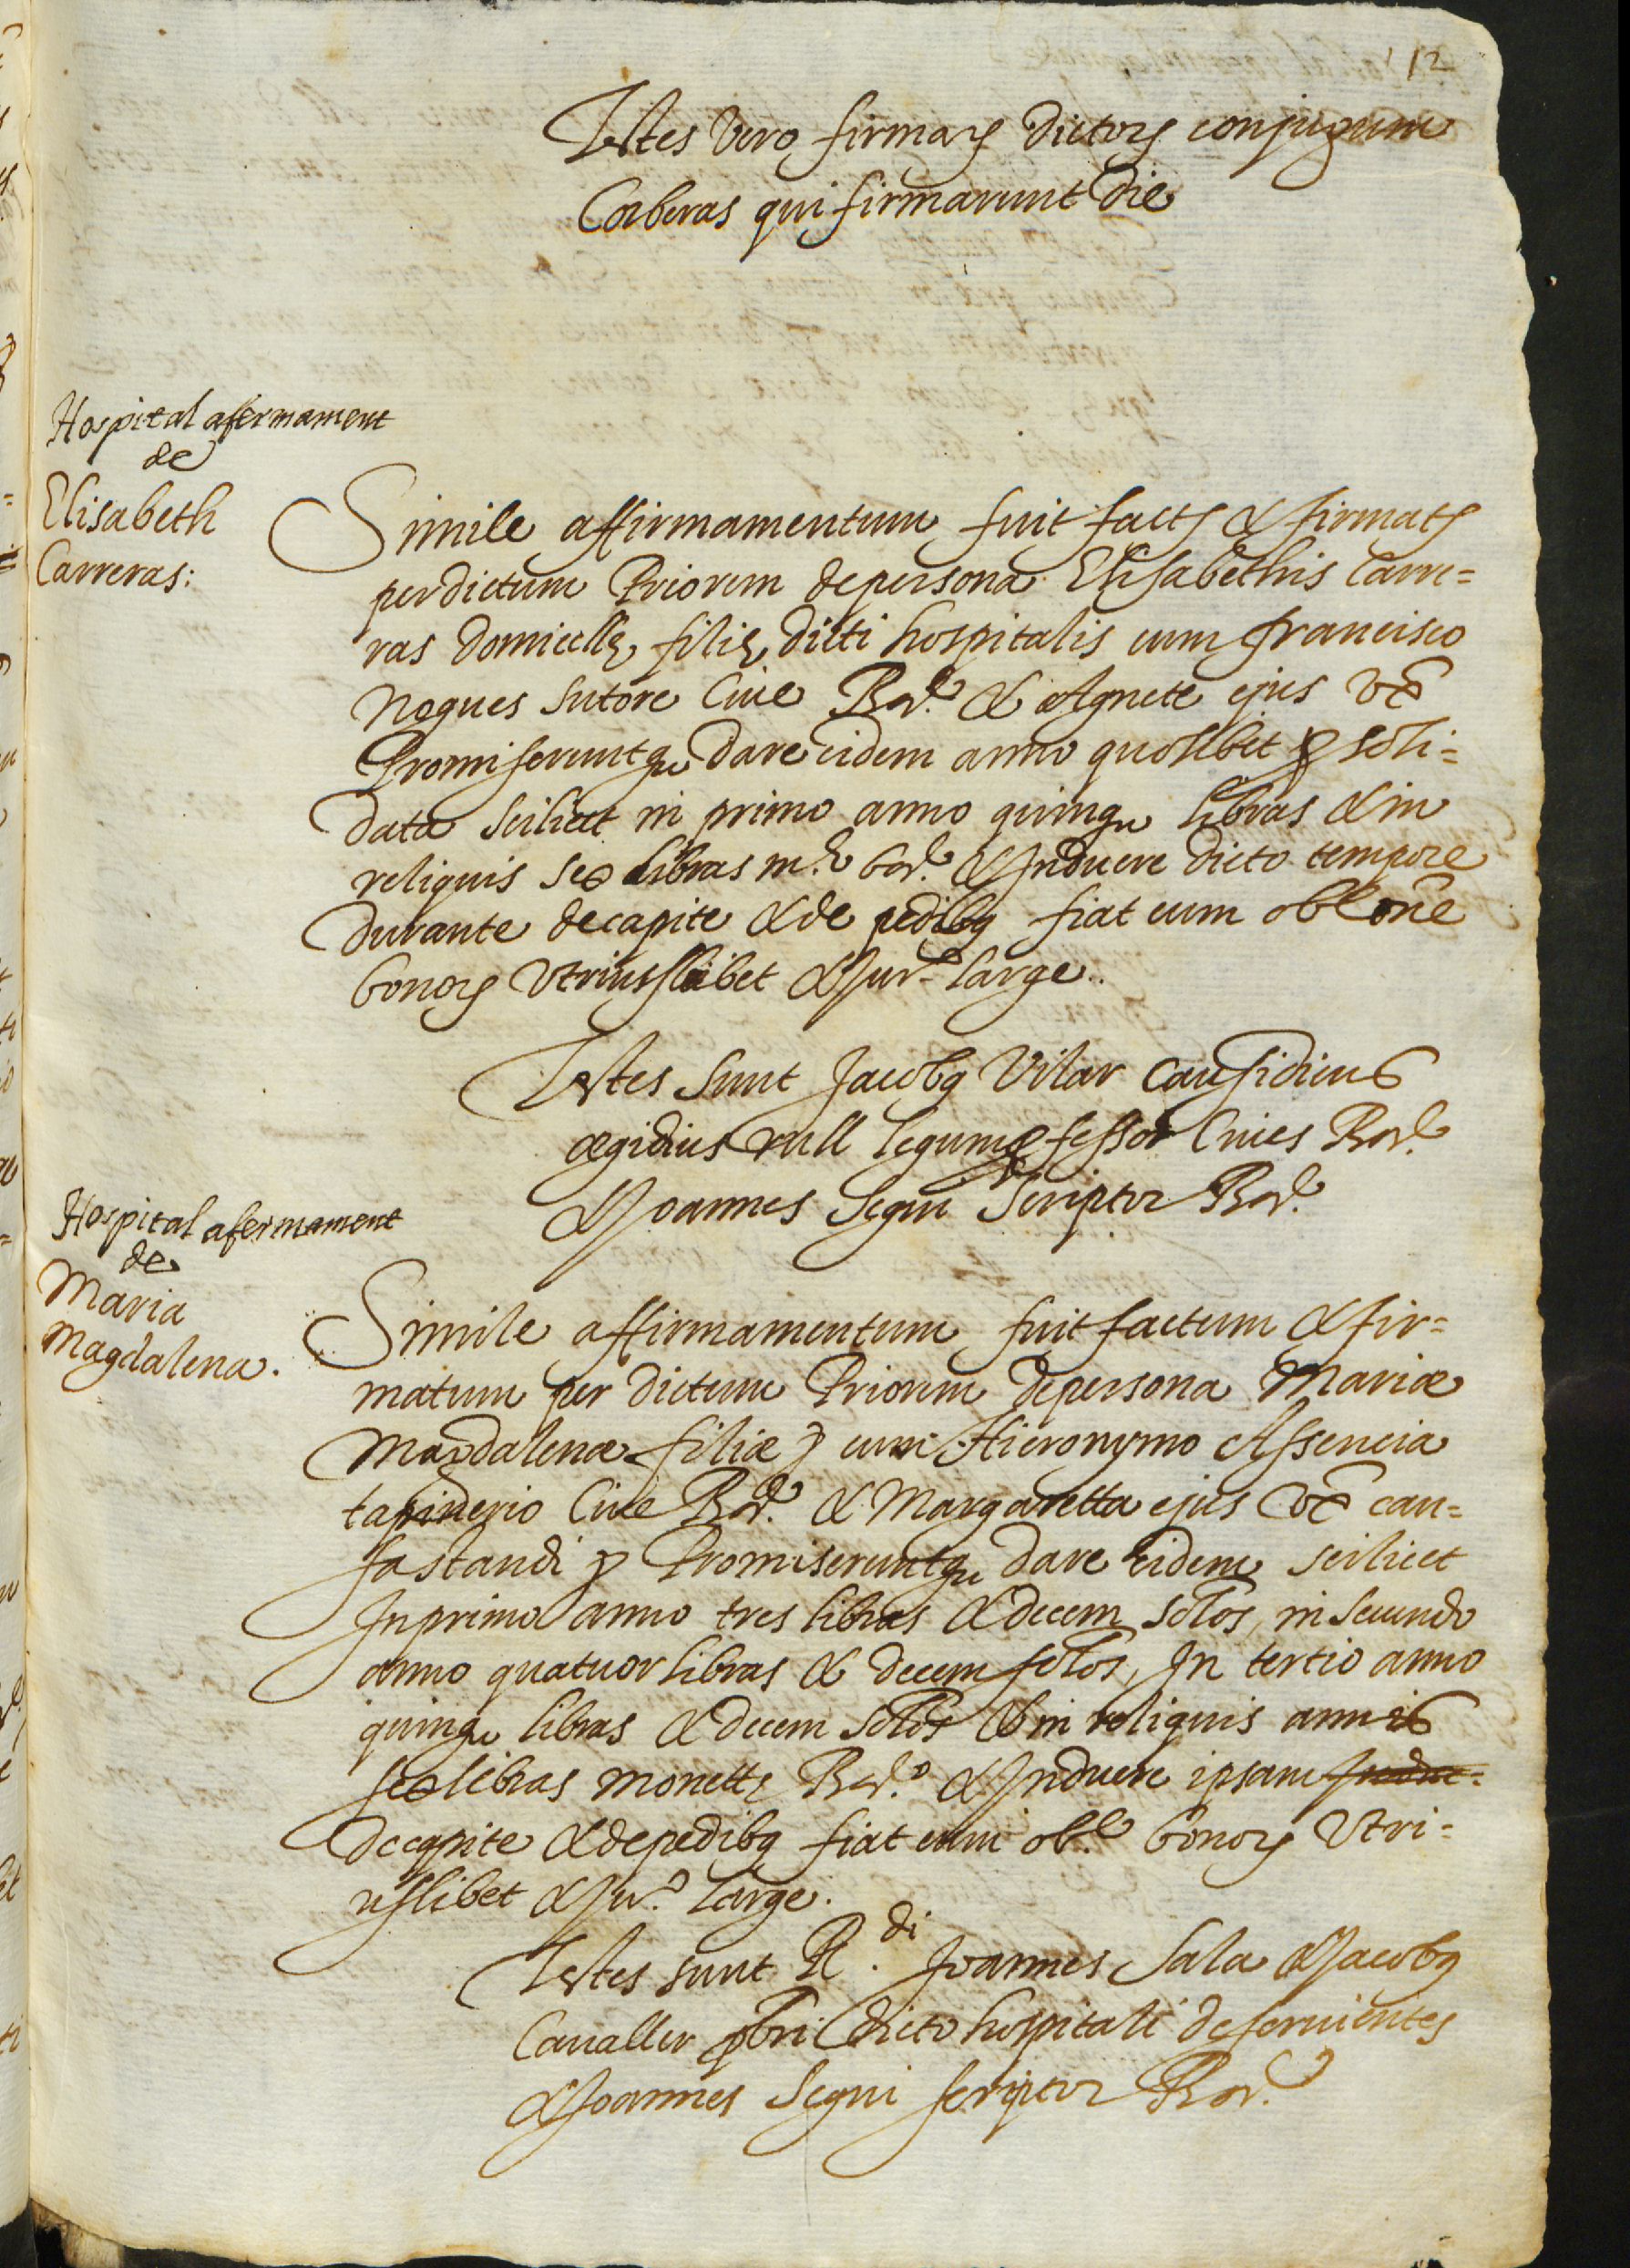 12
Testes vero firmarꝝ dictorꝝ conjugum
Corberas qui firmarunt die
Hospital afermament
de
Elisabeth
Carreras:
Simile affirmamentum fuit factꝫ & firmatꝫ
per dictum Priorem de persona Elisabethis Carre=
ras domicellę filię dicti hospitalis cum Francisco
Nogues sutore Cive Bar.ᵉ & Agnete ejus vx̄
Promiseruntqꝫ dare eidem anno quolibet ꝓ soli=
data scilicet in primo anno quinqꝫ libras & in
reliquis sex libras m.ᵉ bar.ᵉ & Induere dicto tempore
durante de capite & de pedibꝰ fiat cum oblōne
bonorꝝ vtriusslibet & Jur.ᵉ large.
Testes sunt Jacobꝰ Vilar causidicus
ægidius rull legum ꝓfessor Cives Bar.ᵉ
& Joannes Segui Scriptor Bar.ᵉ
Hospital afermament
de
Maria
Magdalena.
Simile affirmamentum fuit factum & fir=
matum per dictum Priorem de persona Mariæ
Magdalenæ filiæ ꝫ cum Hieronymo Assencia
tapinerio Cive Bar.ᵉ & Margaretta ejus vx̄ can=
fastandi ꝫ Promiseruntqꝫ dare eidem scilicet
In primo anno tres libras & decem solōs, in secundo
anno quatuor libras & decem solōs, In tertio anno
quinqꝫ libras & decem solōs & in reliquis annis
sex libras monetę Bar.ᵉ & Induere ipsam
de capite & de pedibꝰ fiat cum obl.ᵉ bonorꝝ vtri=
usslibet & Jur.ᵉ large.
Testes sunt R.di Joannes Sala & Jacobꝰ
Cavaller pbri dicto hospitali deservientes
& Joannes Segui scriptor Bar.ᵉ